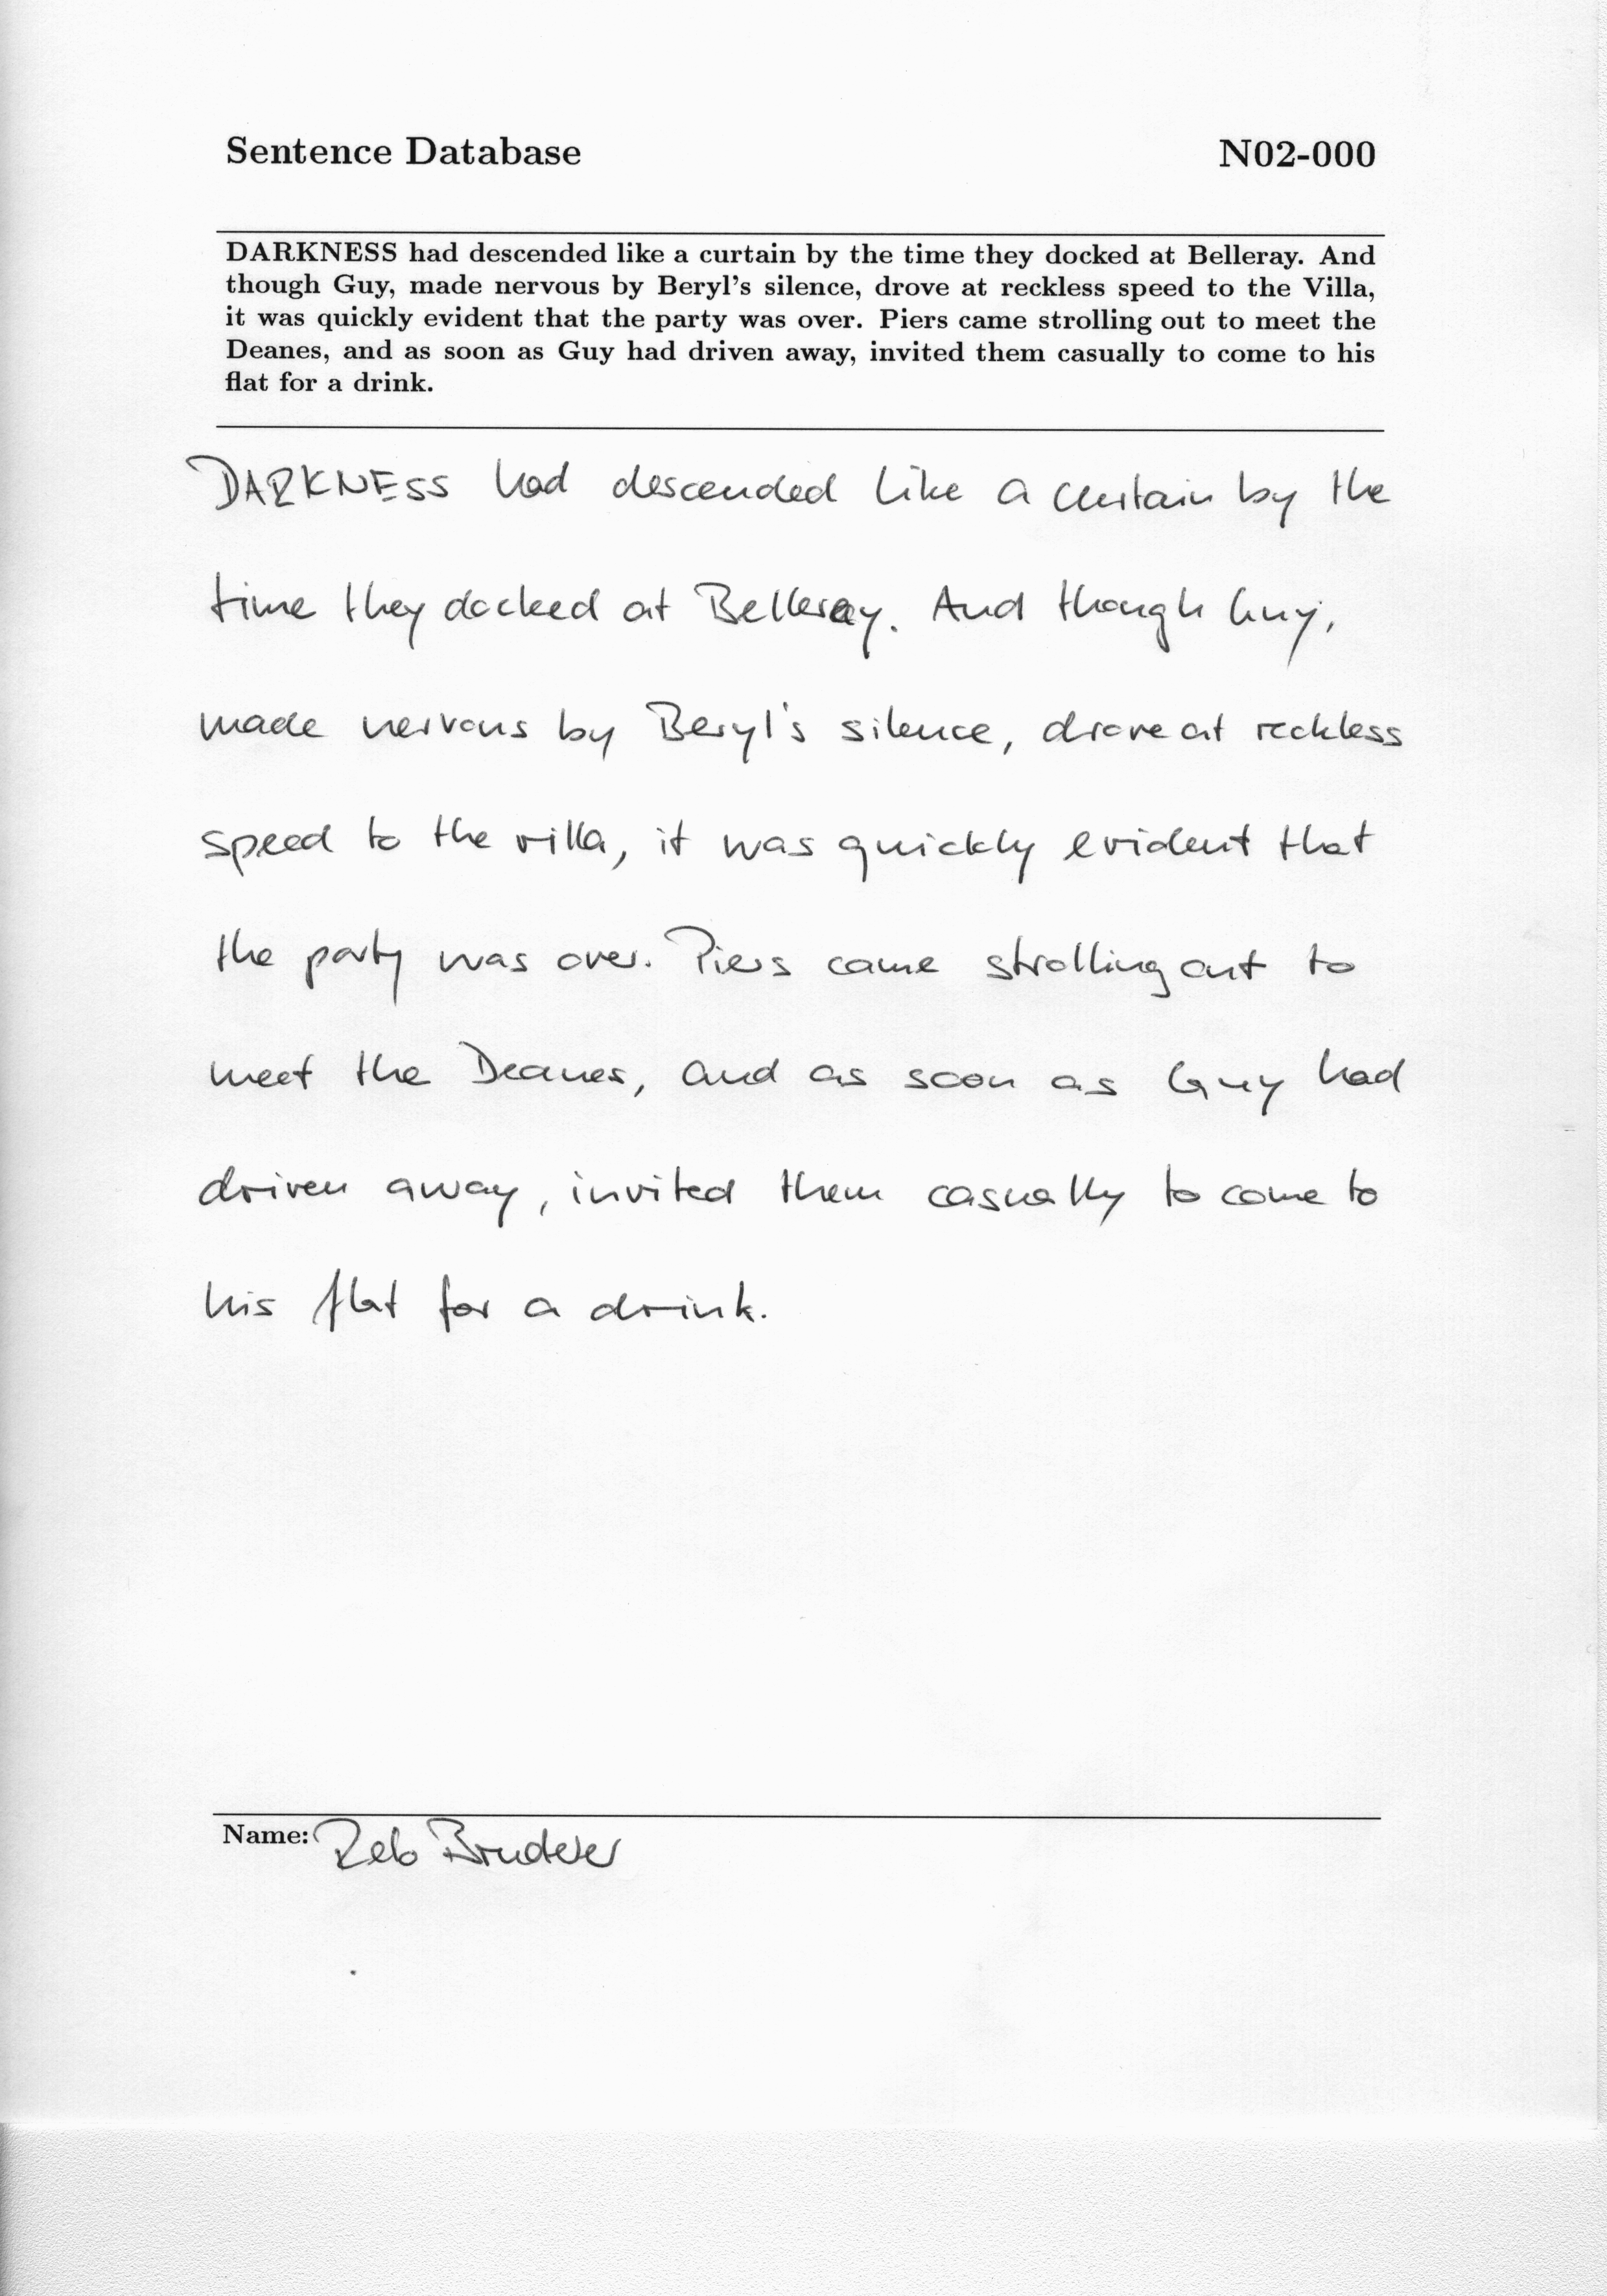 Sentence Database N02-000
DARKNESS had descended like a curtain by the time they docked at Belleray. And
though Guy, made nervous by Beryl's silence, drove at reckless speed to the Villa,
it was quickly evident that the party was over. Piers came strolling out to meet the
Deanes, and as soon as Guy had driven away, invited them casually to come to his
flat for a drink.
DARKNESS had descended like a curtain by the
time they docked at Belleray. And though Guy,
made nervous by Beryl's silence, drove at reckless
speed to the villa, it was quickly evident that
the party was over. Piers came strolling out to
meet the Deanes, and as soon as Guy had
driven away, invited them casually to come to
his flat for a drink.
Name: Reto Bruderer